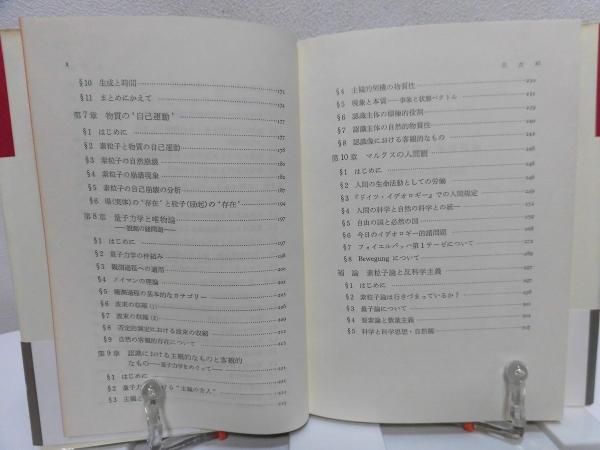 x
§10 生成と時間 171
§11 まとめにかえて 174
第7章 物質の“自己運動” 177
§1 はじめに 177
§2 素粒子と物質の自己運動
§3 素粒子の自然崩壊
§4 素粒子の崩壊現象
§5 素粒子の自己崩壊の分析
§6 場(実体)の“存在”と粒子(励起)の“存在”
第8章 量子力学と唯物論 197
──観測の諸問題──
§1 はじめに 197
§2 量子力学の枠組み
§3 観測過程への適用
§4 ノイマンの理論
§5 観測過程の基本的なカテゴリー
§6 波束の収縮(1)
§7 波束の収縮(2)
§8 否定的測定における波束の収縮
§9 自然の客観的存在について
第9章 認識における主観的なものと客観的
なもの──量子力学をめぐって── 221
§1 はじめに 221
§2 量子力学 る“主観の介入”
§3 主観と
目次 xi
§4 主観的契機の物質性
§5 現象と本質──事象と状態ベクトル
§6 認識主体の積極的役割
§7 認識主体の自然的物質性
§8 認識像における客観的なもの
第10章 マルクスの人間観
§1 はじめに
§2 人間の生命活動としての労働
§3 『ドイツ・イデオロギー』での人間規定
§4 人間の科学と自然の科学との統一
§5 自由の国と必然の国
§6 今日のイデオロギー的諸問題
§7 フォイエルバッハ第1テーゼについて
§8 Bewegung について
補論 素粒子論と反科学主義
§1 はじめに
§2 素粒子論は行きづまっているか?
§3 量子論について
§4 要素論と数量主義
§5 科学と科学思想・自然観